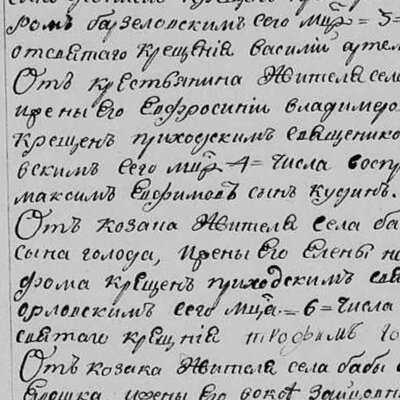 ромъ барзеловскимъ сего мця = 5 =
отсвятаго крещенія василій артем
Отъ крестьянина жителя села
ирены его Евфросиніи владимеро
крещенъ приходскимъ священико
вскимъ сего мця 4 = числа воспр
максимъ Евфимовъ сынъ кудинъ.
Отъ козака жителя села ба
сына голода, ирены его Елены
фома крещенъ приходскимъ свя
орловскимъ сего мця = 6 = числа
святаго крещнія трофимъ го
Отъ козака жителя села бабы
ирены его